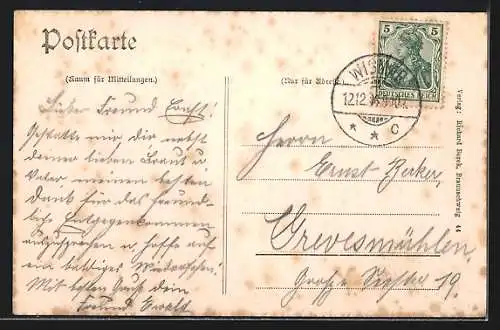 Postkarte
(Raum für Mitteilungen.)
(Nur für Adresse.)
5 5
DEUTSCHES REICH
WISMAR
12.12.
* * c
Lieber Freund Ernst!
Gestatte mir dir nebst
deiner lieben Braut u
Vater, meinen besten
Dank für das freund-
liche Entgegenkommen
auszusprechen u. hoffe auf
ein baldiges Wiedersehen!
Mit besten Gruß dein
Freund Ewald
Herrn
Ernst Becker,
Grevesmühlen,
Große Seestr 19.
Verlag: Richard Borek, Braunschweig 44